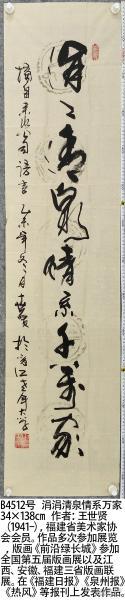 涓涓清泉情系万家
B4512号 涓涓清泉情系万家
34×138cm 作者；王世贤
（1941-），福建省美术家协
会会员。作品多次参加展览
，版画《前沿绿长城》参加
全国第五届版画展以及江
西、安徽、福建三省版画联
展。在《福建日报》《泉州报》
《热风》等报刊上发表作品。